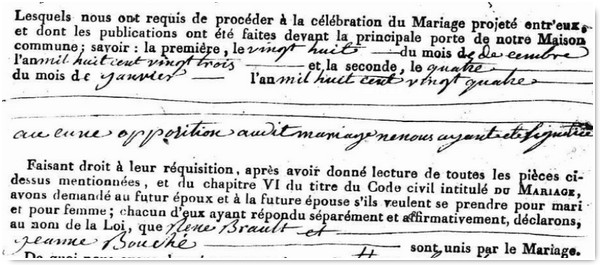 Lesquels nous ont requis de procéder à la célébration du Mariage projeté entr'eux,
et dont les publications ont été faites devant la principale porte de notre Maison
commune; savoir: la première, le vingt huit du mois de decembre
l'an mil huit cent vingt trois et la seconde, le quatre
du mois de janvier l'an mil huit cent vingt quatre
aucune opposition audit mariage ne nous ayant été signifiée
Faisant droit à leur réquisition, après avoir donné lecture de toutes les pièces ci-
dessus mentionnées, et du chapitre VI du titre du Code civil intitulé DU MARIAGE,
avons demandé au futur époux et à la future épouse s'ils veulent se prendre pour mari
et pour femme; chacun d'eux ayant répondu séparément et affirmativement, déclarons,
au nom de la Loi, que René Brault et
Jeanne Bouché sont unis par le Mariage.